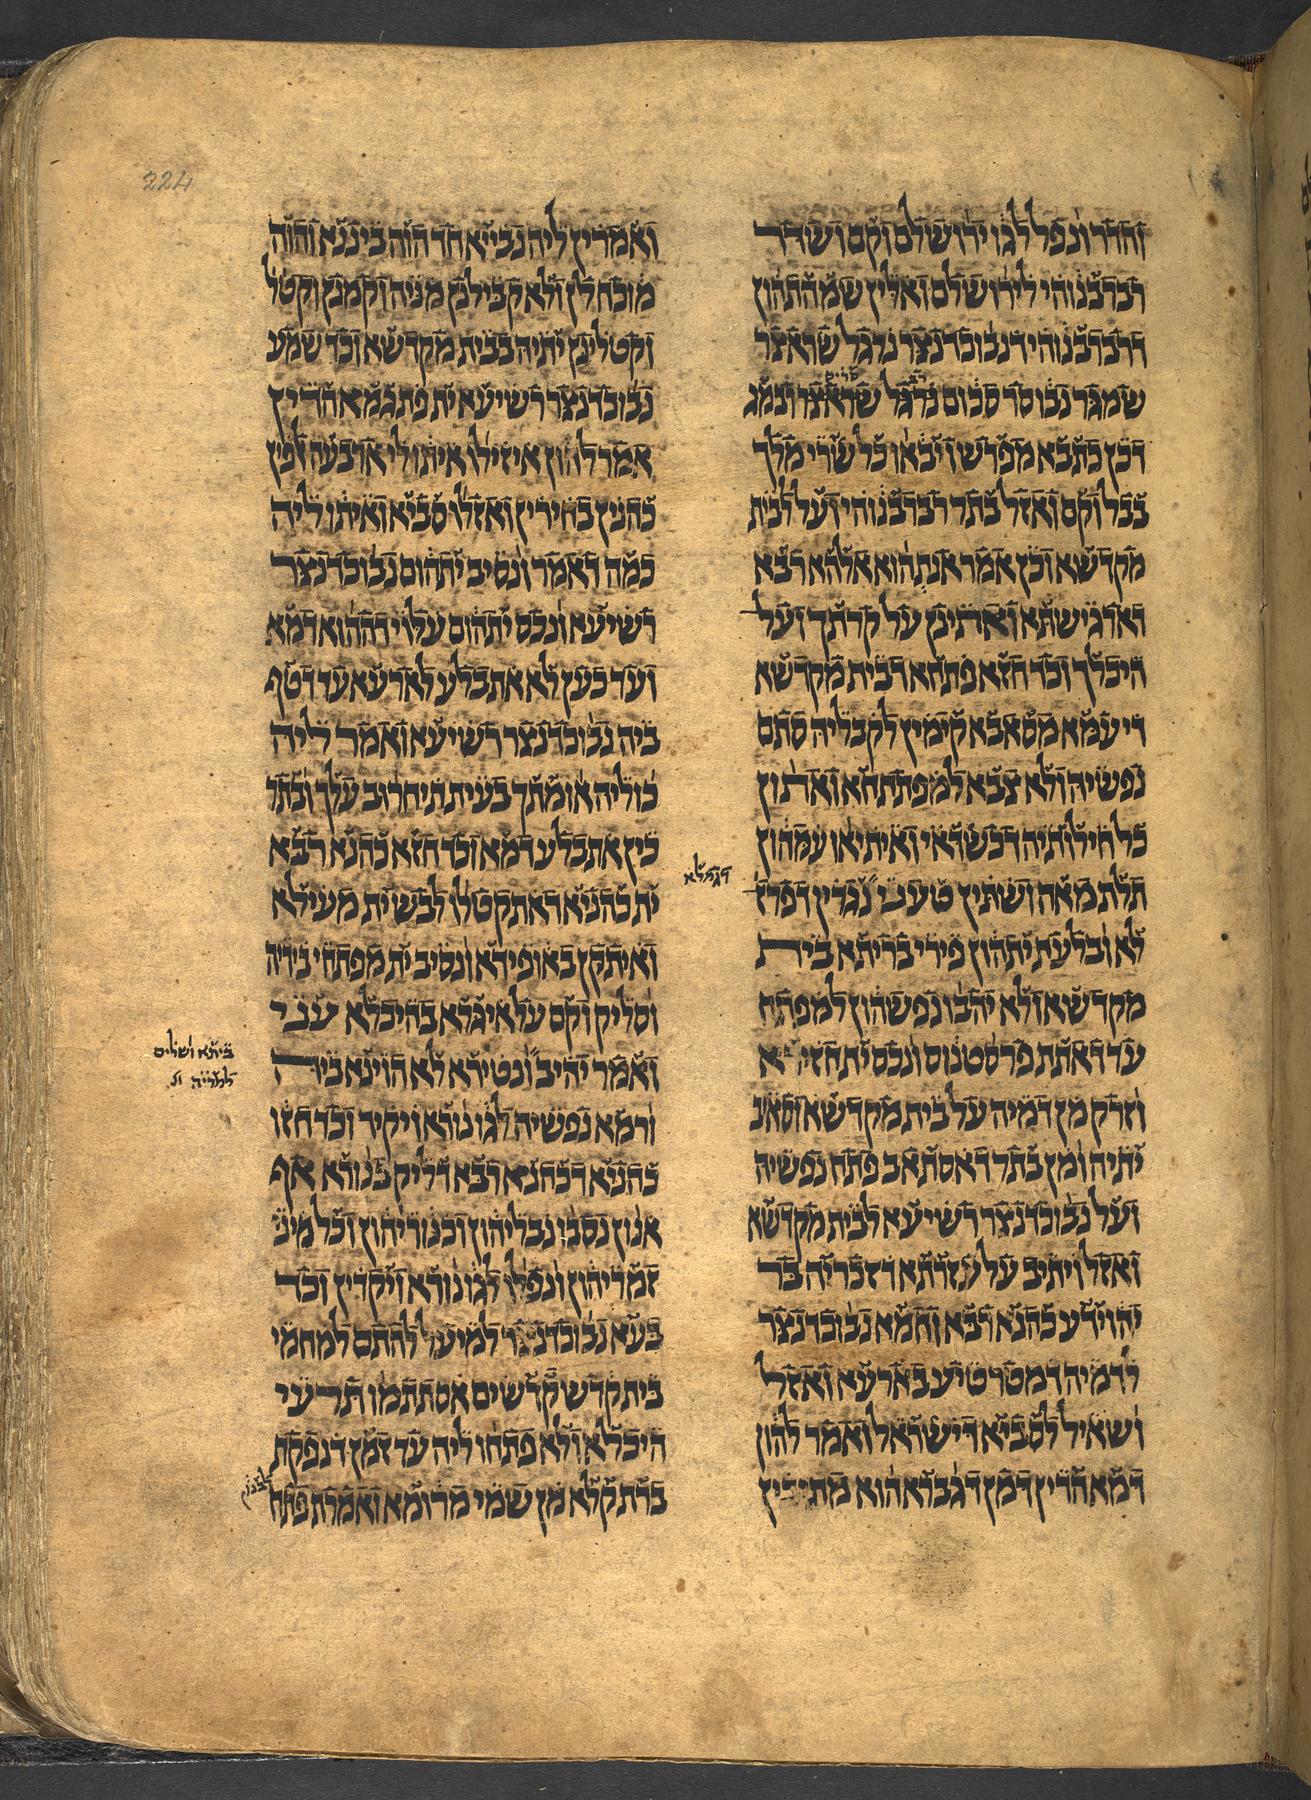 והדר ונפל לגו ירושלם וקם ושדר
רברבנוהי לירושלם ואלין שמהתהון
דרברבנוהי דנבוכדנצר נרגל שראצר
שמגר נבו סר סכום נרגל שראצר רבמג
דכן כתבא מפרש ויבאו כל שרי מלך
בבל וקם ואזל בתר רברבנוהי ועל לבית
מקדשא וכן אמר אנת הוא אלהא רבא
דארגישתא ואתינן על קרתך ועל
היכלך וכד חזא פתחא דבית מקדשא
די עמא מסאבא קימין לקבליה סתם
נפשיה ולא צבא למפתחא ואתון
כל חילותיה דכשדאי ואיתיאו עמהון
תלת מאה ושתין טעני נגרין דפרז
לא ובלעת יתהון פירי בריתא בית
מקדשא ולא יהבו נפשהון למפתח
עד דאתת פרסטנוס ונכס ית חזירא
וזרק מן דמיה על בית מקדשא וסאיב
יתיה ומן בתר דאסתאב פתח נפשיה
ועל נבוכדנצר רשיעא לבית מקדשא
ואזל ויתיב על עזרתא דזכריה בר
יהוידע כהנא רבא וחמא נבוכדנצר
לדמיה דמטרטיע בארעא ואזל
ושאיל לסביא דישראל ואמר להון
דמא הדין דמן דגברא הוא מתיבין
דגמלא
ואמרין ליה נבייא חד הוה ביננא והוה
מוכח לן ולא קבילנן מניה וקמנן וקטל
וקטלינן יתיה בבית מקדשא וכד שמע
נבוכדנצר רשיעא ית פתגמא הדין
אמר להון איזילו איתו לי ארבעה לפין
כהנין בחירין ואזלו סביא ואיתו ליה
כמה דאמר ונסיב יתהום נבוכדנצר
רשיעא ונכס יתהום עלוי דההוא דמא
ועד כען לא אתבלע לארעא עד דטף
ביה נבוכדנצר רשיעא ואמר ליה
כוליה אומתך בעית תיחרוב עלך ובתר
כין אתבלע דמא וכד חזא כהנא רבא
ית כהניא דאתקטלו לבש ית מעילא
ואיתקן באופירא ונסיב ית מפתחי בידיה
וסליק וקם על איגרא בהיכלא עני
ואמר יהיב ונטירא לא הוינא ביה
ורמא נפשיה לגו נורא ויקיד וכד חזו
כהניא דכהנא רבא דליק בנורא אף
אנון נסבו נבליהון וכנוריהון וכל מיני
זמריהון ונפלו לגו נורא ויקדין וכד
בעא נבוכדנצר למיעל להתם למחמי
בית קדש קדשים אסתתמו תרעי
היכלא ולא פתחו ליה עד זמן דנפקת
ברת קלא מן שמי מרומא ואמרת פתח
לבנון
ביתא ושלים
למריה